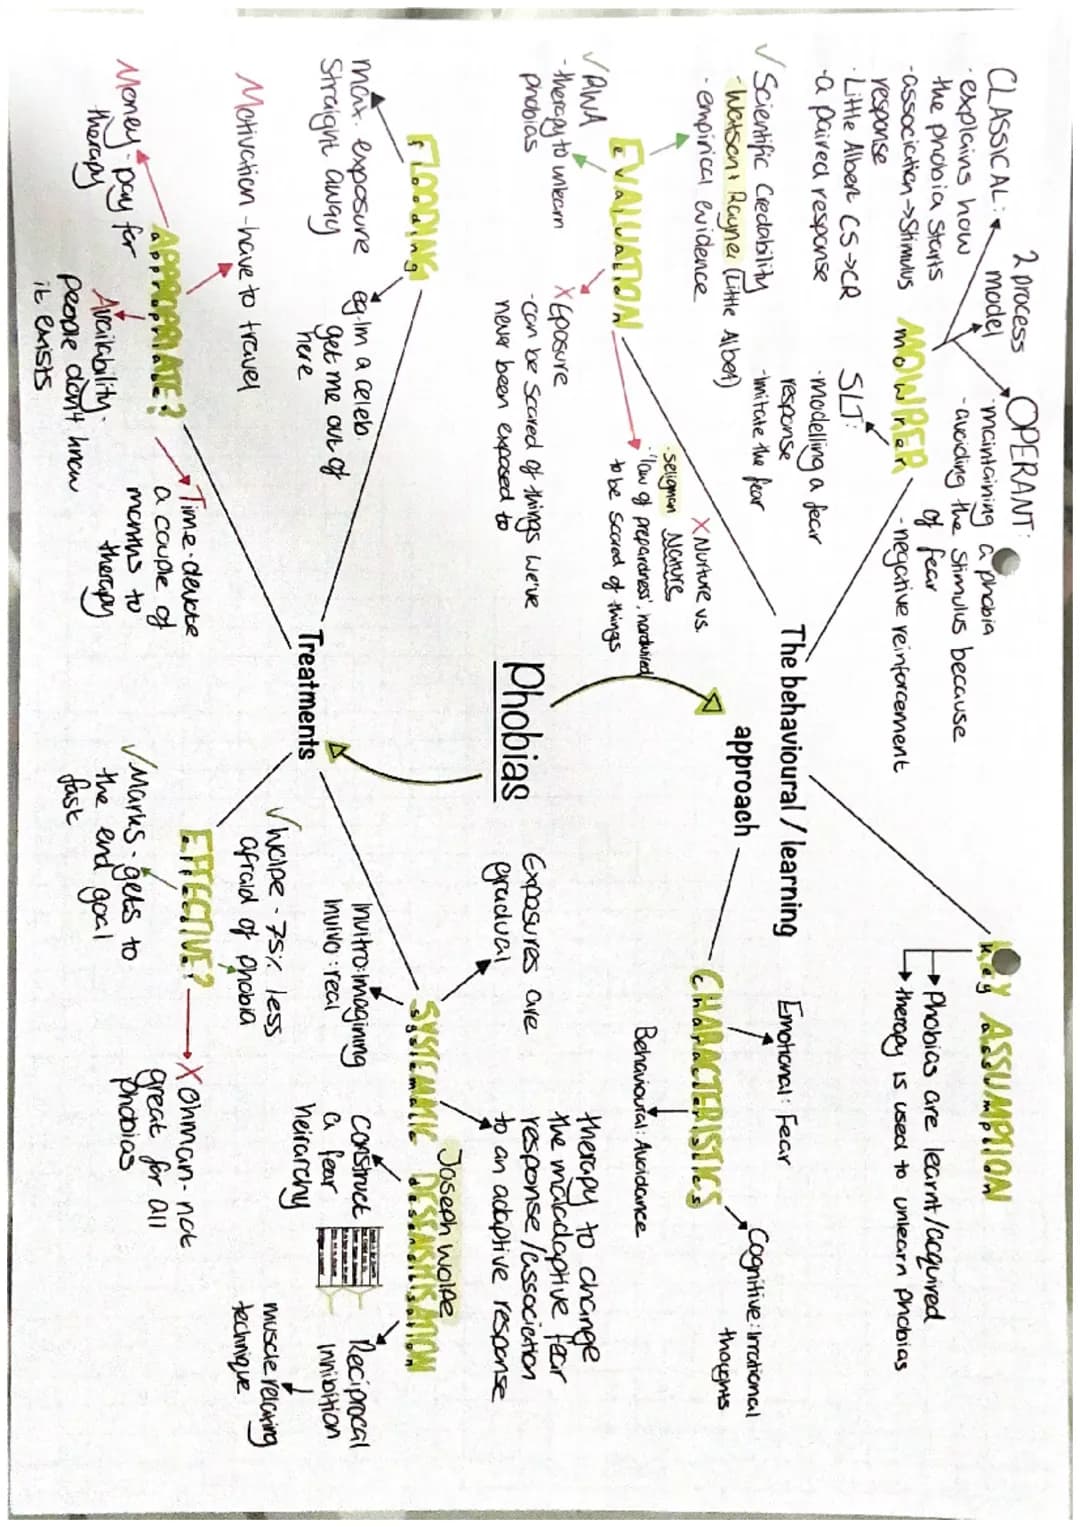 Phobias
The behavioural / learning
approach
KEY ASSUMPTION
key assumption
Phobias are learnt/acquired
therapy is used to unlearn phobias
CHARACTERISTICS
characteristics
Emotional: Fear
Behavioural: Avoidance
Cognitive: irrational
thoughts
MOWRER
mowrer
2 process
model
CLASSICAL:
· explains how
the phobia starts
- association → stimulus
response
· Little Albert CS → CR
- a paired response
OPERANT:
· maintaining a phobia
- avoiding the stimulus because
of fear
- negative reinforcement
SLT:
· modelling a fear
response
- imitate the fear
EVALUATION
evaluation
✓ Scientific Credability
- Watson + Rayner (Little Albert)
· empirical evidence
✓ RWA
- therapy to unlearn
phobias
X Exposure
- can be scared of things we've
never been exposed to
X Nurture vs.
Nature
· seligman
· 'law of preparedness', hardwired
to be scared of things
Treatments
FLOODING
flooding
max. exposure
straight away
eg. im a celeb
get me out of
here
SYSTEMATIC DESENSITISATION
systematic desensitisation
Joseph wolpe
Exposures are
gradual
invitro: imagining
invivo: real
therapy to change
the maladaptive fear
response / association
to an adaptive response
construct
a fear
heirarchy
Reciprocal
inhibition
muscle relaxing
technique
APPROPRIATE?
appropriate?
Motivation - have to travel
Money - pay for
therapy
Availability -
people don't know
it exists
Time - devote
a couple of
months to
therapy
EFFECTIVE?
effective?
✓ Wolpe - 75% less
afraid of phobia
✓ Marks - gets to
the end goal
fast
X Ohman - not
great for all
phobias